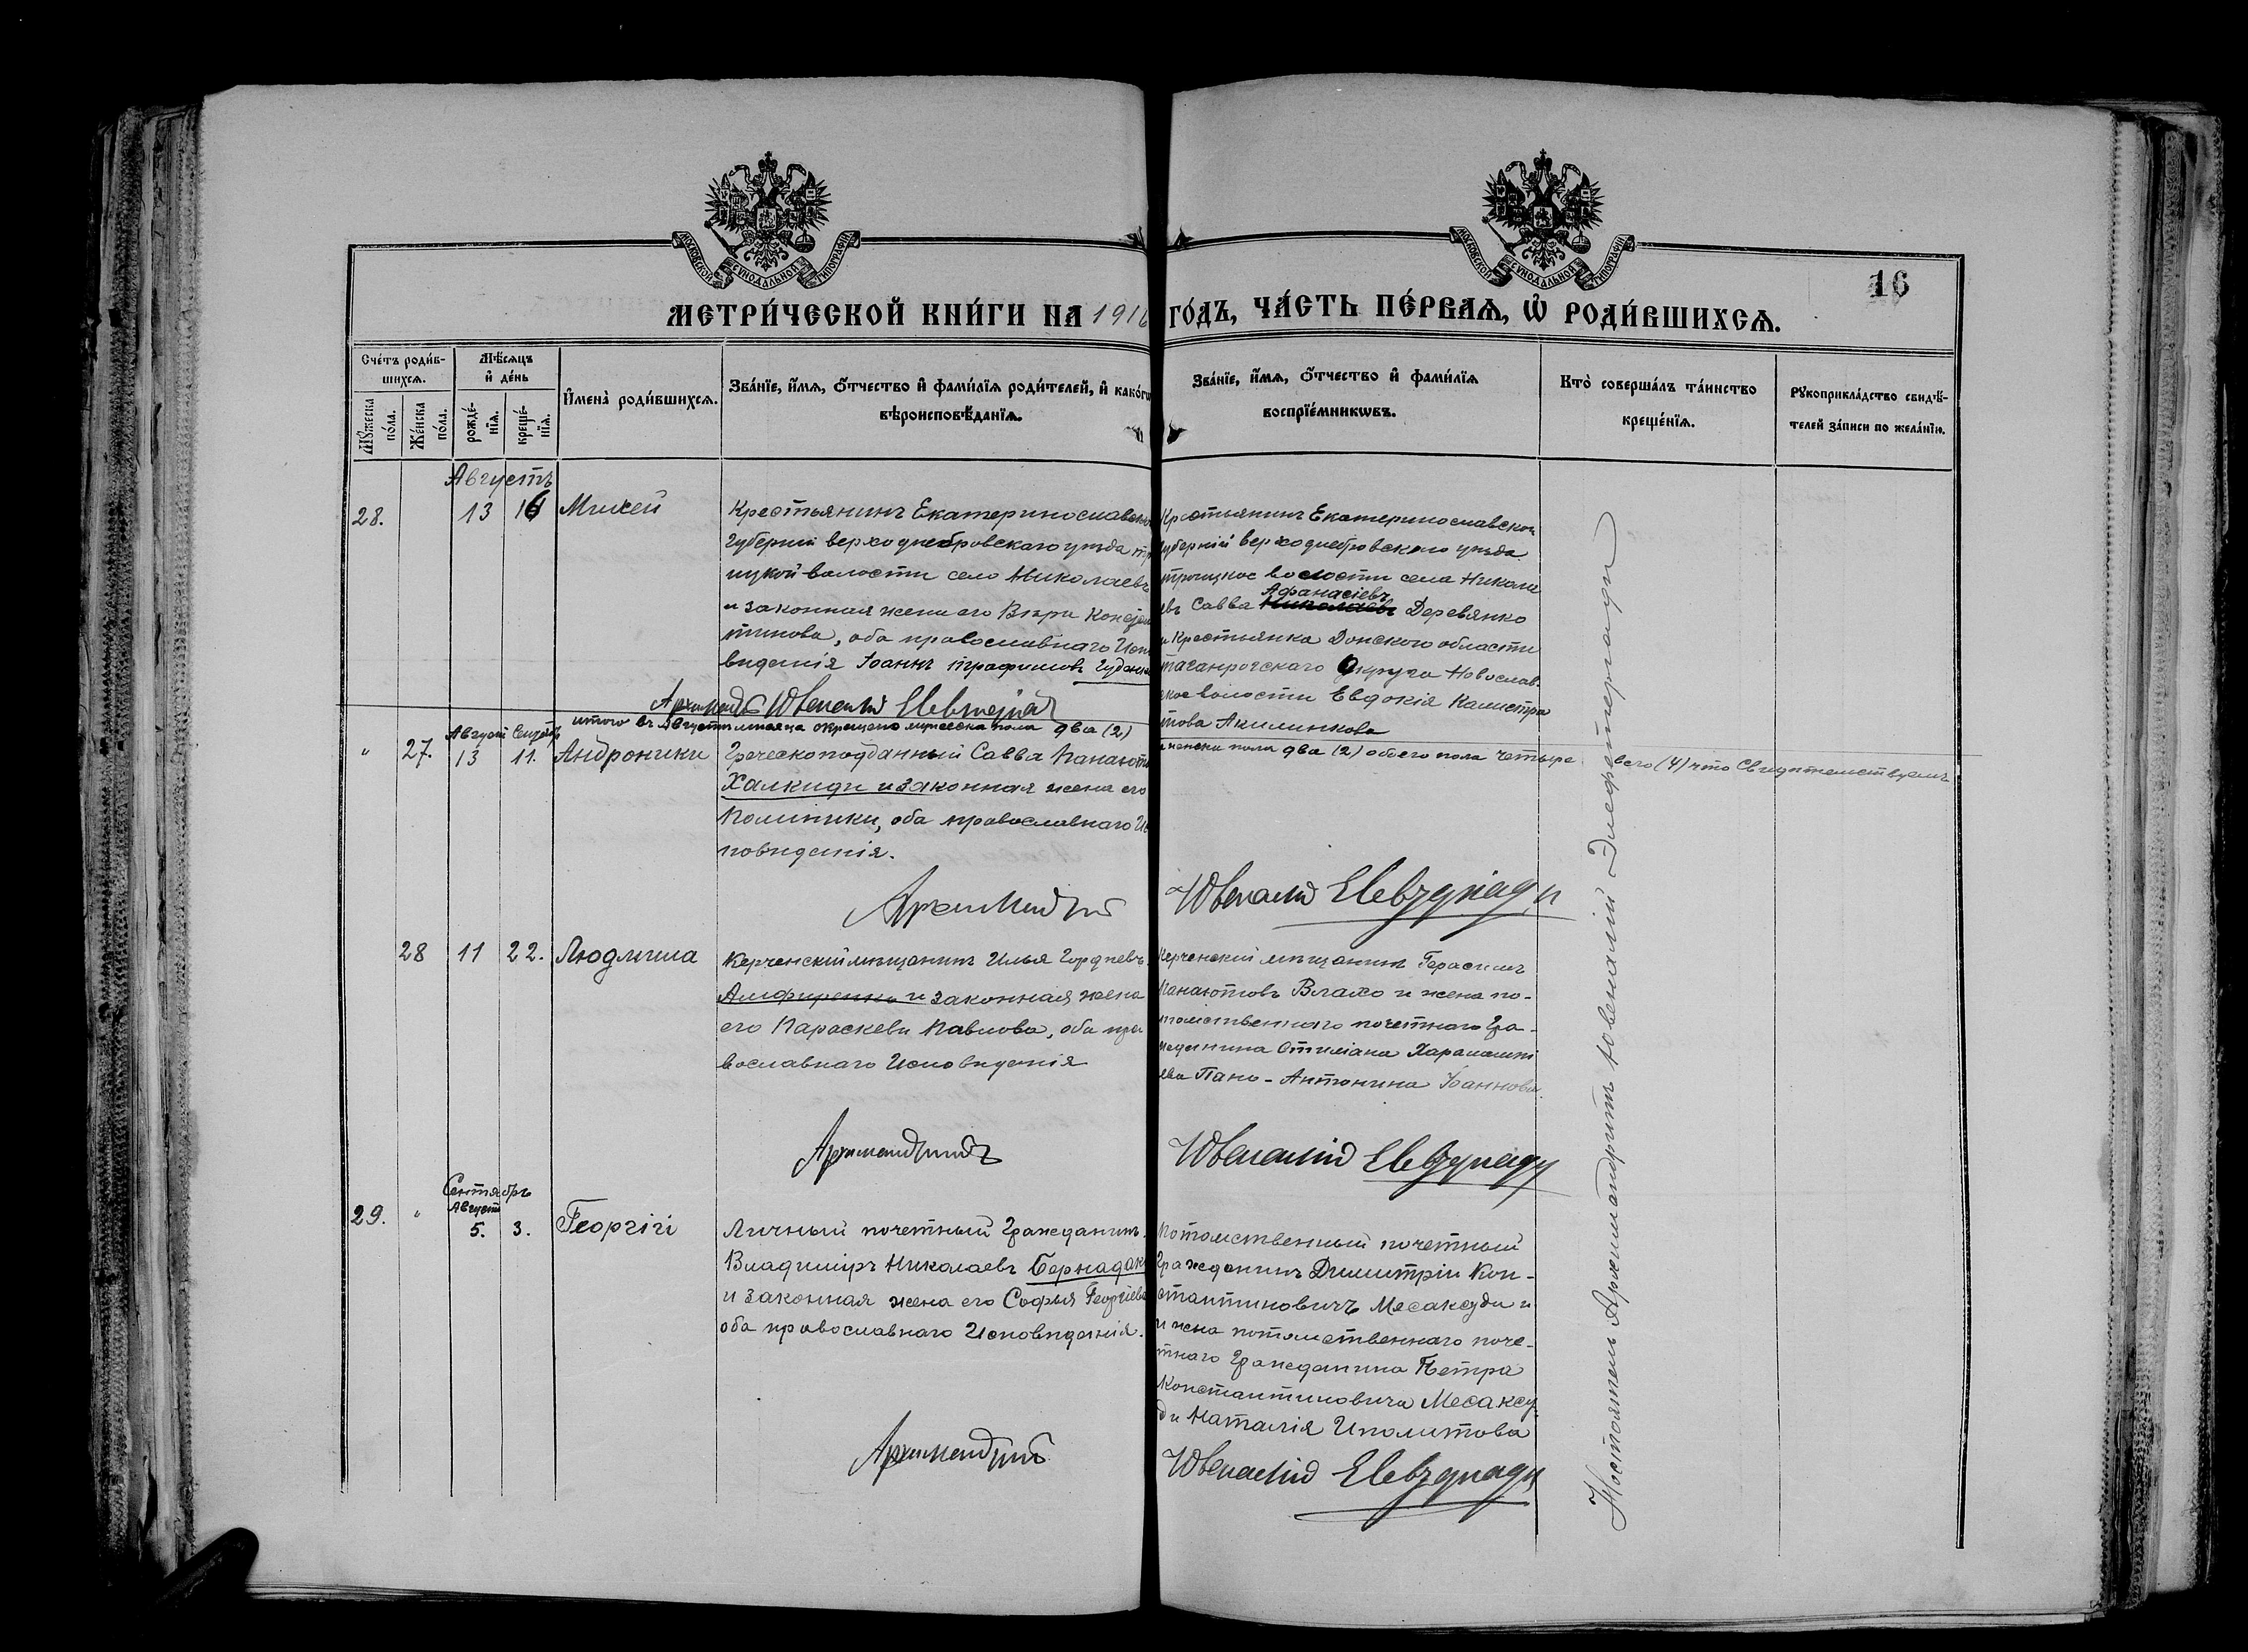 МОСКОВСКОЙ СѴНОДАЛЬНОЙ ТИПОГРАФІИ
МОСКОВСКОЙ СѴНОДАЛЬНОЙ ТИПОГРАФІИ
16
МЕТРИ́ЧЕСКОЙ КНИ́ГИ НА 1916 ГО́ДЪ, ЧА́СТЬ ПЕ́РВАѦ, Ѽ РОДИ́ВШИХСѦ.
Сче́тъ роди́в-
шихсѧ.
Мꙋ́жеска по́ла.
Же́нска по́ла.
Мѣ́сѧцъ
и҆ де́нь
рожде́-нїѧ.
креще́-нїѧ.
И҆мена̀ роди́вшихсѧ.
Зва́нїе, и҆́мѧ, ѻ҆́тчество и҆ фами́лїѧ роди́телей, и҆ како́гѡ
вѣ́роисповѣ́данїѧ.
Зва́нїе, и҆́мѧ, ѻ҆́тчество и҆ фами́лїѧ
воспрїе́мникѡвъ.
Кто̀ соверша́лъ та́инство
креще́нїѧ.
Рꙋкоприкла́дство свидѣ́-
телей за́писи по жела́нїю.
Августъ
28.
13
Михей
Крестьянинъ Екатеринославской
губерніи верходнебровскаго уѣзда
ицкой волости село Николаевъ
и законная жена его Вѣра Конста
тинова, оба православнаго Испо
вѣданія Іоаннъ
Крстьянинъ Екатеринославской
губерній верходнебровскаго уѣзда
троицкое волости села Никола
Афанасіевъ
евъ Савва Николаевъ Деревянко
и Крестьянка Донского области
таганрогскаго Округа Новослав-
ское волости Евдокія Калистра
това Акилинкова
итого въ Августѣ мѣсяца окрещено мужеска пола два (2)
женска пола два (2) обоего пола четыре всего (4) что Свидѣтельствуемъ
Август Сентябр
" 27. 13 11. Андроники
Греческоподданный Савва Панаіоти
Халкиди и законная жена его
Полиники, оба православнаго Ис
повѣданія.
Архимандритъ Ювеналій
28 11 22. Людмила
Керченскій мѣщанинъ Илья Гордѣевъ
Алифиренко и законная жена
его Параскева Павлова, оба пра
вославнаго Исповѣданія
Керченскій мѣщанинъ Герасимъ
Панаютовъ Влахо и жена по-
томственнаго почетнаго Гра-
жданина Стиліана Харалампі
ева Пано-Антонина Іоаннова.
Архимандритъ Ювеналій
Сентябрь
Августъ
29. " 5. 3. Георгій
Личный почетный Гражданинъ
Владиміръ Николаевъ Бернадаки
и законная жена его Софья Георгіева
оба православнаго Исповѣданія.
Потомственный почетный
Гражданинъ Димитрій Кон-
стантиновичъ Месаксуди и
и жена потомственнаго поче-
тнаго Гражданина Петра
Константиновича Месаксу-
ди Наталія Иполитова
Архимандритъ Ювеналій
Настоятель Архимандритъ Ювеналій Элефтеріади